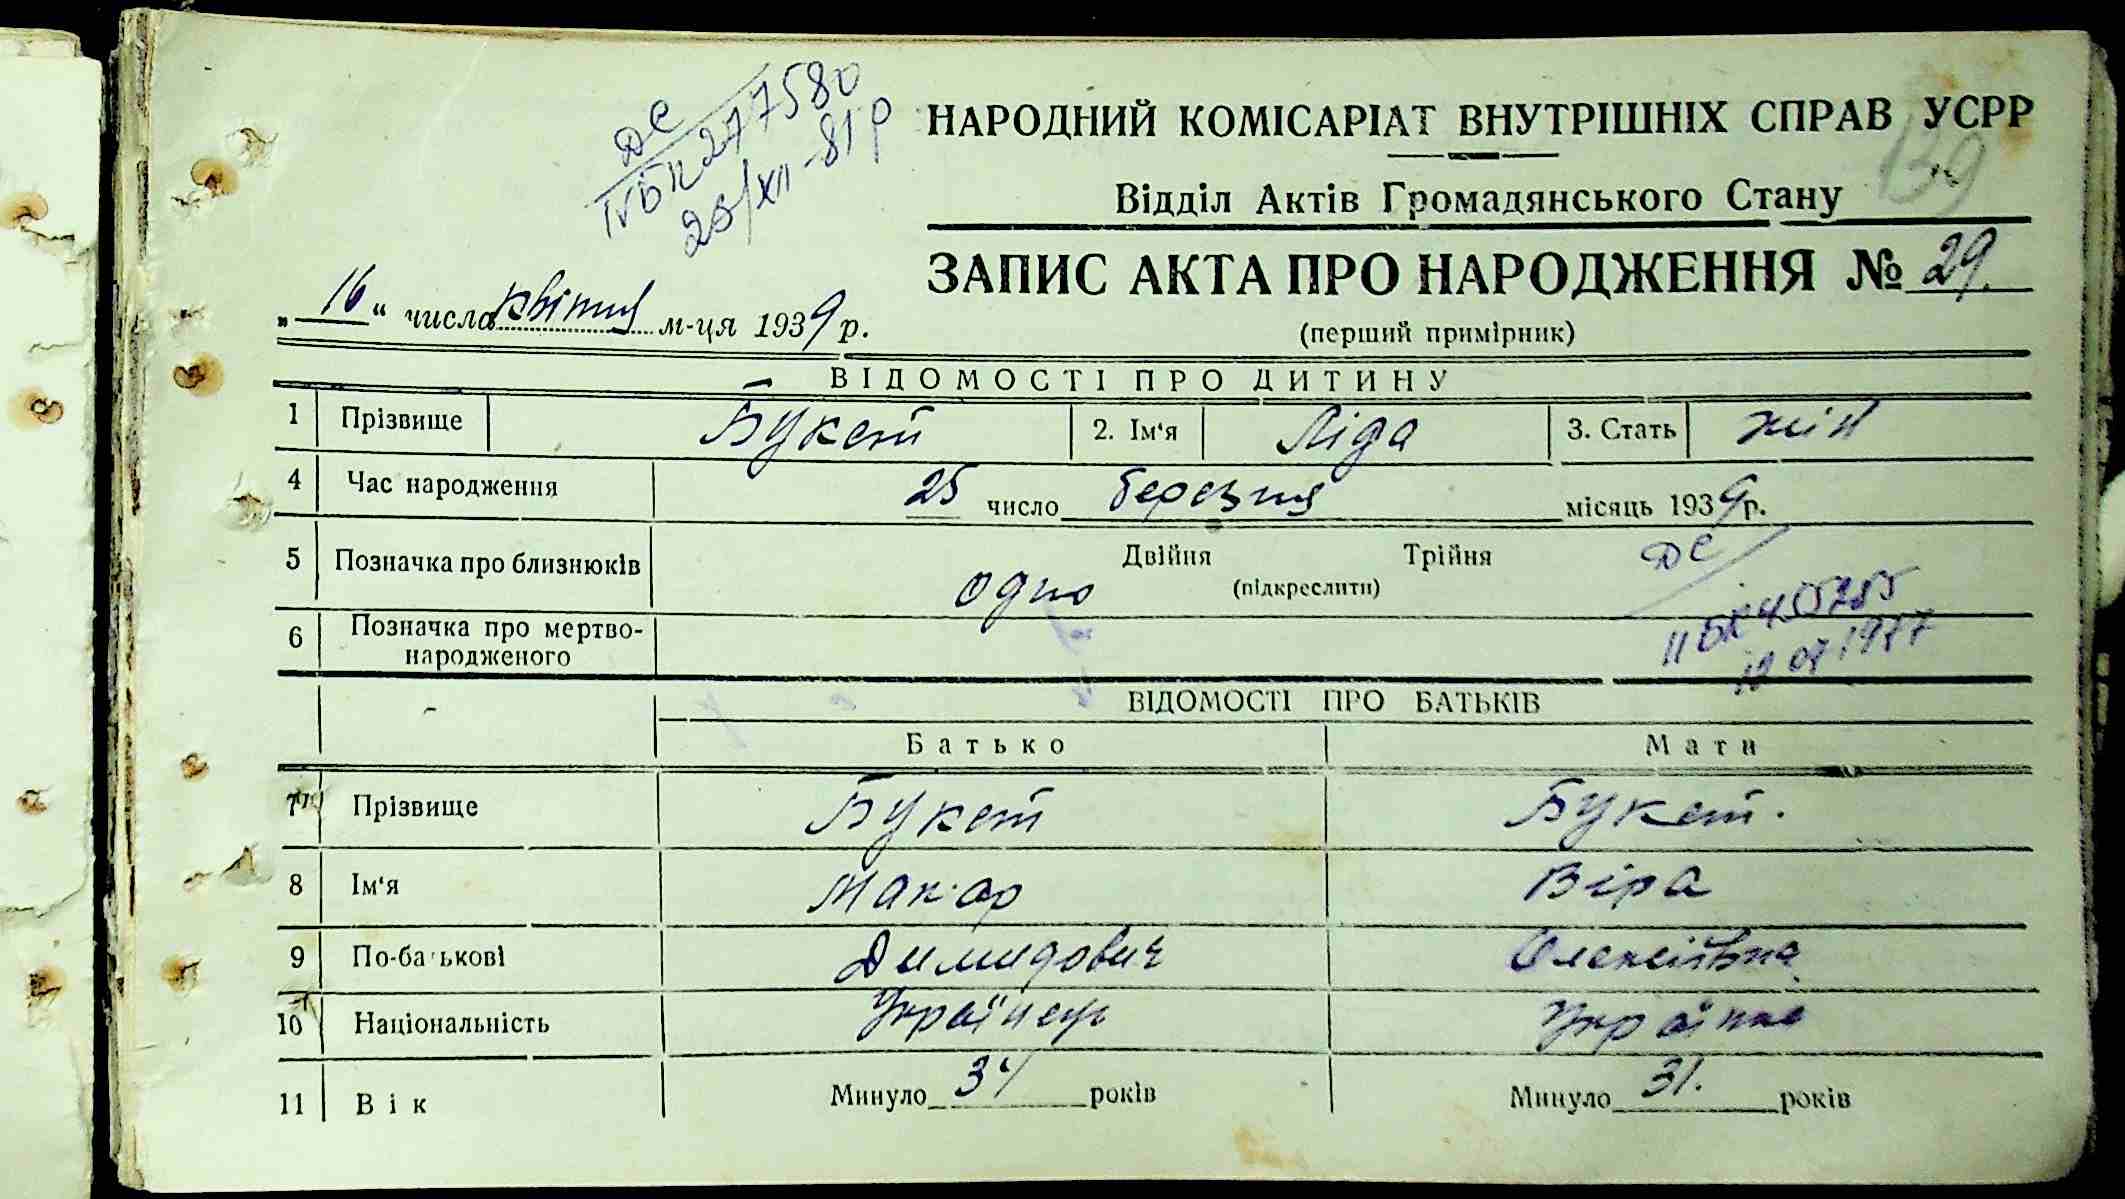 ДС
ІVБК 277580
23/XII-81 р
НАРОДНИЙ КОМІСАРІАТ ВНУТРІШНІХ СПРАВ УСРР
139
Відділ Актів Громадянського Стану
ЗАПИС АКТА ПРО НАРОДЖЕННЯ № 29.
„16“ числа квітня м-ця 1939 р.
(перший примірник)
ВІДОМОСТІ ПРО ДИТИНУ
1 Прізвище Букет 2. Ім‘я Ліда 3. Стать жін
4 Час народження 25 число березня місяць 1939 р.
5 Позначка про близнюків одно Двійня Трійня
(підкреслити)
ДС
ІІ БК 455285
1977
6 Позначка про мертво-
народженого
ВІДОМОСТІ ПРО БАТЬКІВ
Батько Мати
7 Прізвище Букет Букет.
8 Ім‘я Макар Віра
9 По-батькові Димидович Олексіївна
10 Національність Українець Українка
11 Вік Минуло 34 років Минуло 31. років